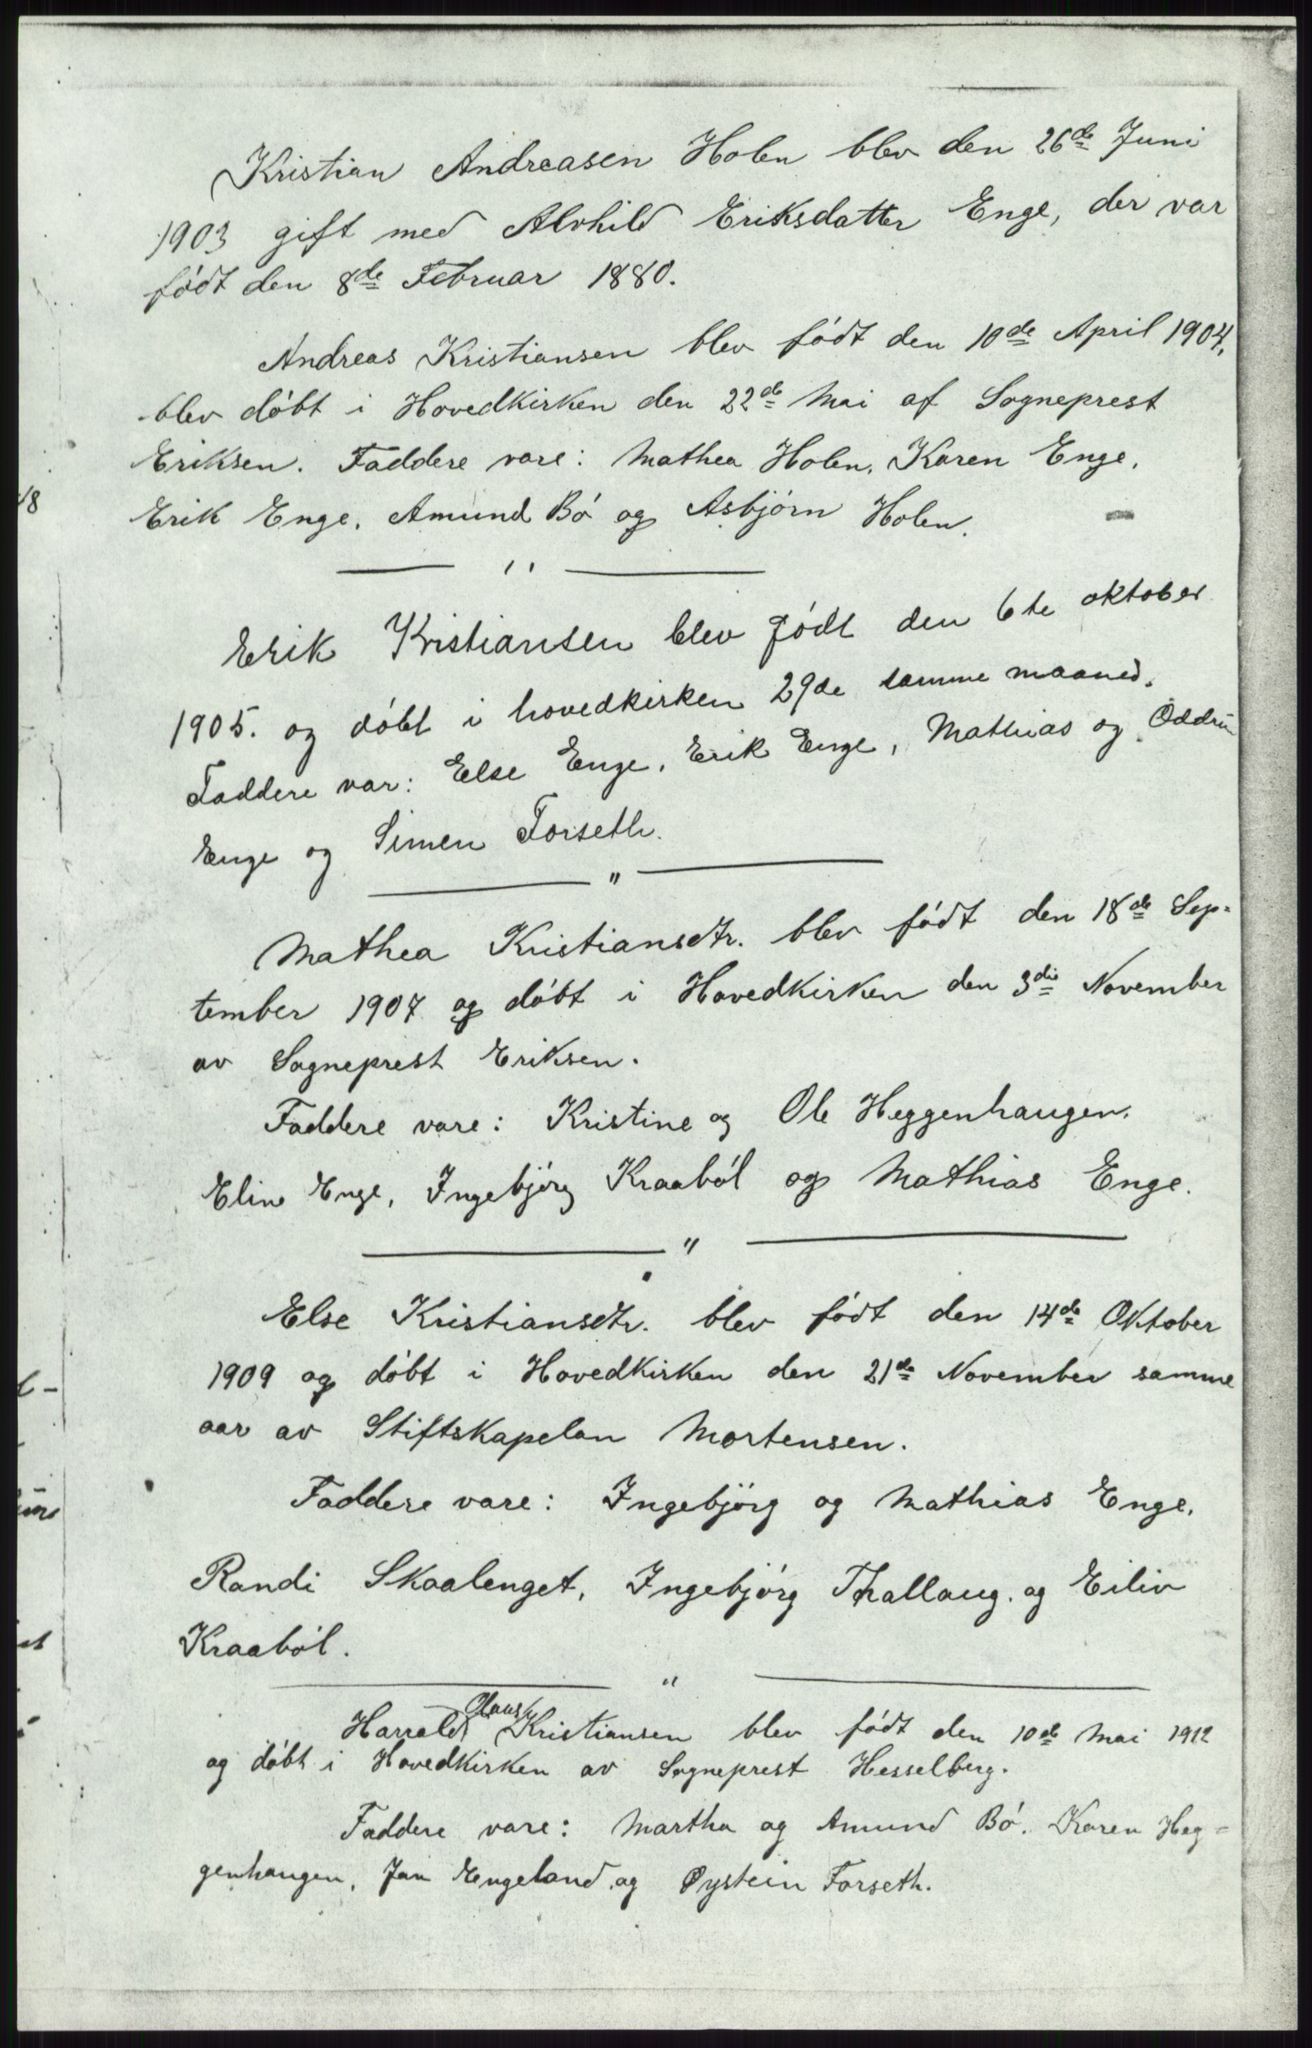 Kristian Andreasen Holen blev den 26de Juni
1903 gift med Alvhild Eriksdatter Enge, der var
født den 8de Februar 1880.
Andreas Kristiansen blev født den 10de April 1904,
blev døbt i Hovedkirken den 22de Mai af Sogneprest
Eriksen. Faddere vare: Mathea Holen, Karen Enge,
Erik Enge, Amund Bø og Asbjørn Holen.
Erik Kristiansen blev født den 6te oktober
1905. og døbt i hovedkirken 29de samme maaned.
Faddere var: Else Enge, Erik Enge, Mathias og Oddrŭ
Enge og Simen Forseth.
"
Mathea Kristiansdtr. blev født den 18de Sep-
tember 1907 og døbt i Hovedkirken den 3die November
av Sogneprest Eriksen.
Faddere vare: Kristine og Ole Heggenhaugen.
Eline Enge, Ingebjørg Kraabøl og Mathias Enge.
"
Else Kristiansdtr. blev født den 14de Oktober
1909 og døbt i Hovedkirken den 21de November samme
aar av Stiftskapelan Mortensen.
Faddere vare: Ingebjörg og Mathias Enge,
Randi Skaalenget, Ingebjørg Thallaug. og Eiliv
Kraabøl.
"
Harrald Olaus Kristiansen blev født den 10de Mai 1912
og døbt i Hovedkirken av Sogneprest Hesselberg.
Faddere vare: Martha og Amund Bø. Karen Heg-
genhaugen, Jan Engeland og Øystein Forseth.